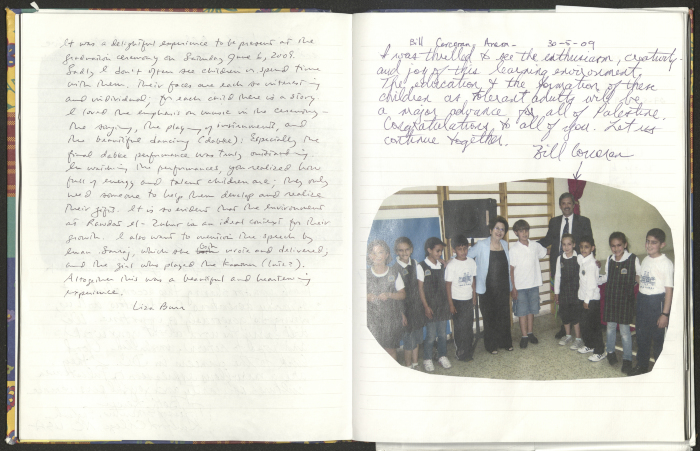 It was a delightful experience to be present at the
graduation ceremony on Saturday June 6, 2009.
Sadly I don't often see children or spend time
with them. Their faces are each so interesting
and individual; for each child there is a story.
I loved the emphasis on music in the ceremony -
the singing, the playing of instruments, and
the beautiful dancing (dabke). Especially the
final dabke performance was truly outstanding.
In watching the performances, you realized how
full of energy and talent children are; they only
need someone to help them develop and realize
their gifts. It is so evident that the environment
at Rawdat el-Zuhur is an ideal context for their
growth. I also want to mention the speech by
, which she both wrote and delivered,
and the girl who played the Kanoun (lute?).
Altogether this was a beautiful and heartening
experience.
Liza
Bill Corcoran, Anera - 30-5-09
I was thrilled to see the enthusiasm, creativity
and joy of this learning environment.
The education & the formation of these
children as tolerant adults will be
a major advance for all of Palestine.
Congratulations to all of you. Let us
continue together.
Bill Corcoran